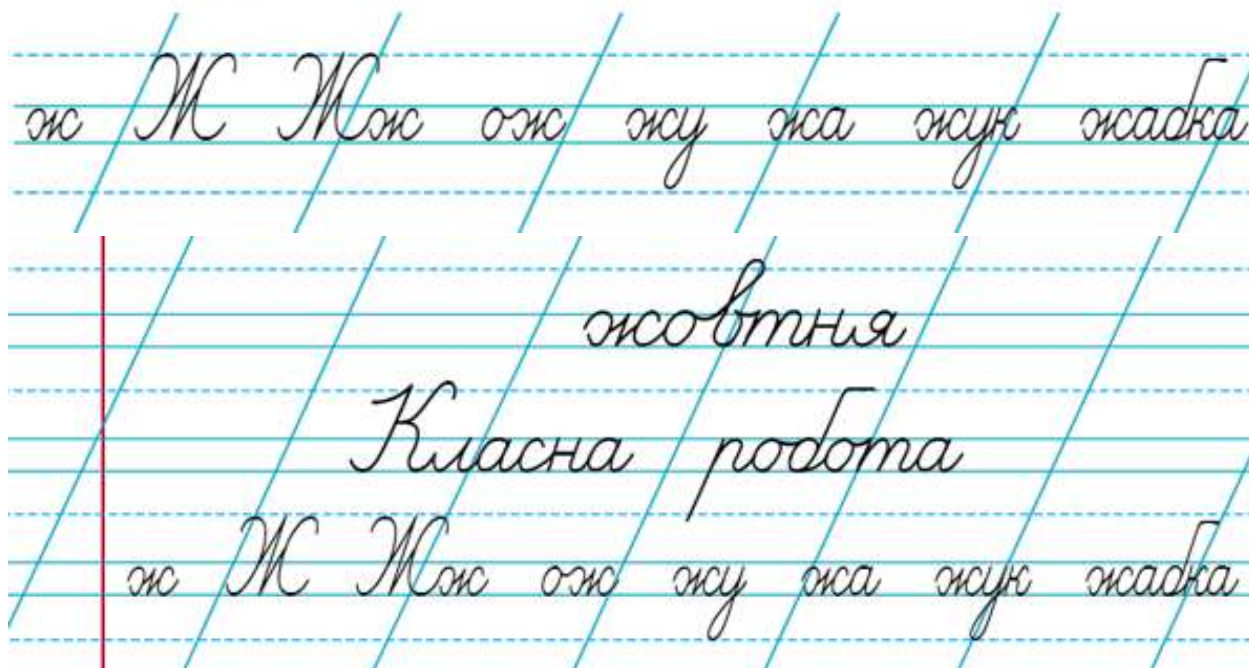 ж Ж Жж ож жу жа жук жабка
жовтня
Класна робота
ж Ж Жж ож жу жа жук жабка